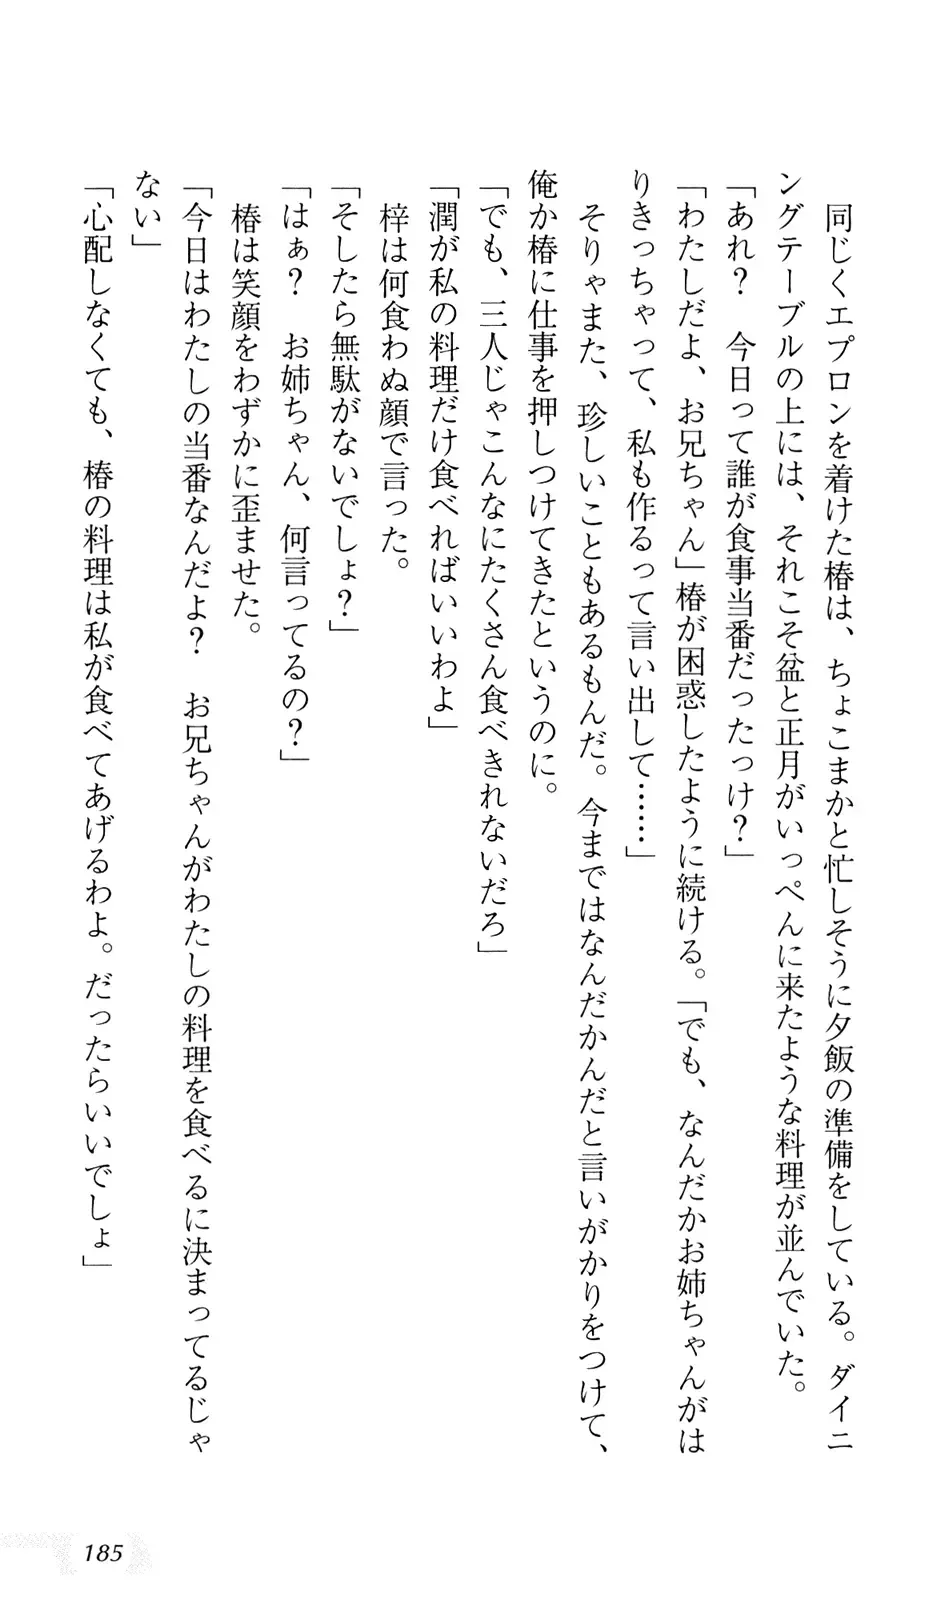 同じくエプロンを着けた椿は、ちょこまかと忙しそうに夕飯の準備をしている。ダイニ
ングテーブルの上には、それこそ盆と正月がいっぺんに来たような料理が並んでいた。
「あれ？　今日って誰が食事当番だったっけ？」
「わたしだよ、お兄ちゃん」椿が困惑したように続ける。「でも、なんだかお姉ちゃんがは
りきっちゃって、私も作るって言い出して……」
　そりゃまた、珍しいこともあるもんだ。今まではなんだかんだと言いがかりをつけて、
俺か椿に仕事を押しつけてきたというのに。
「でも、三人じゃこんなにたくさん食べきれないだろ」
「潤が私の料理だけ食べればいいわよ」
　梓は何食わぬ顔で言った。
「そしたら無駄がないでしょ？」
「はぁ？　お姉ちゃん、何言ってるの？」
　椿は笑顔をわずかに歪ませた。
「今日はわたしの当番なんだよ？　お兄ちゃんがわたしの料理を食べるに決まってるじゃ
ない」
「心配しなくても、椿の料理は私が食べてあげるわよ。だったらいいでしょ」
185